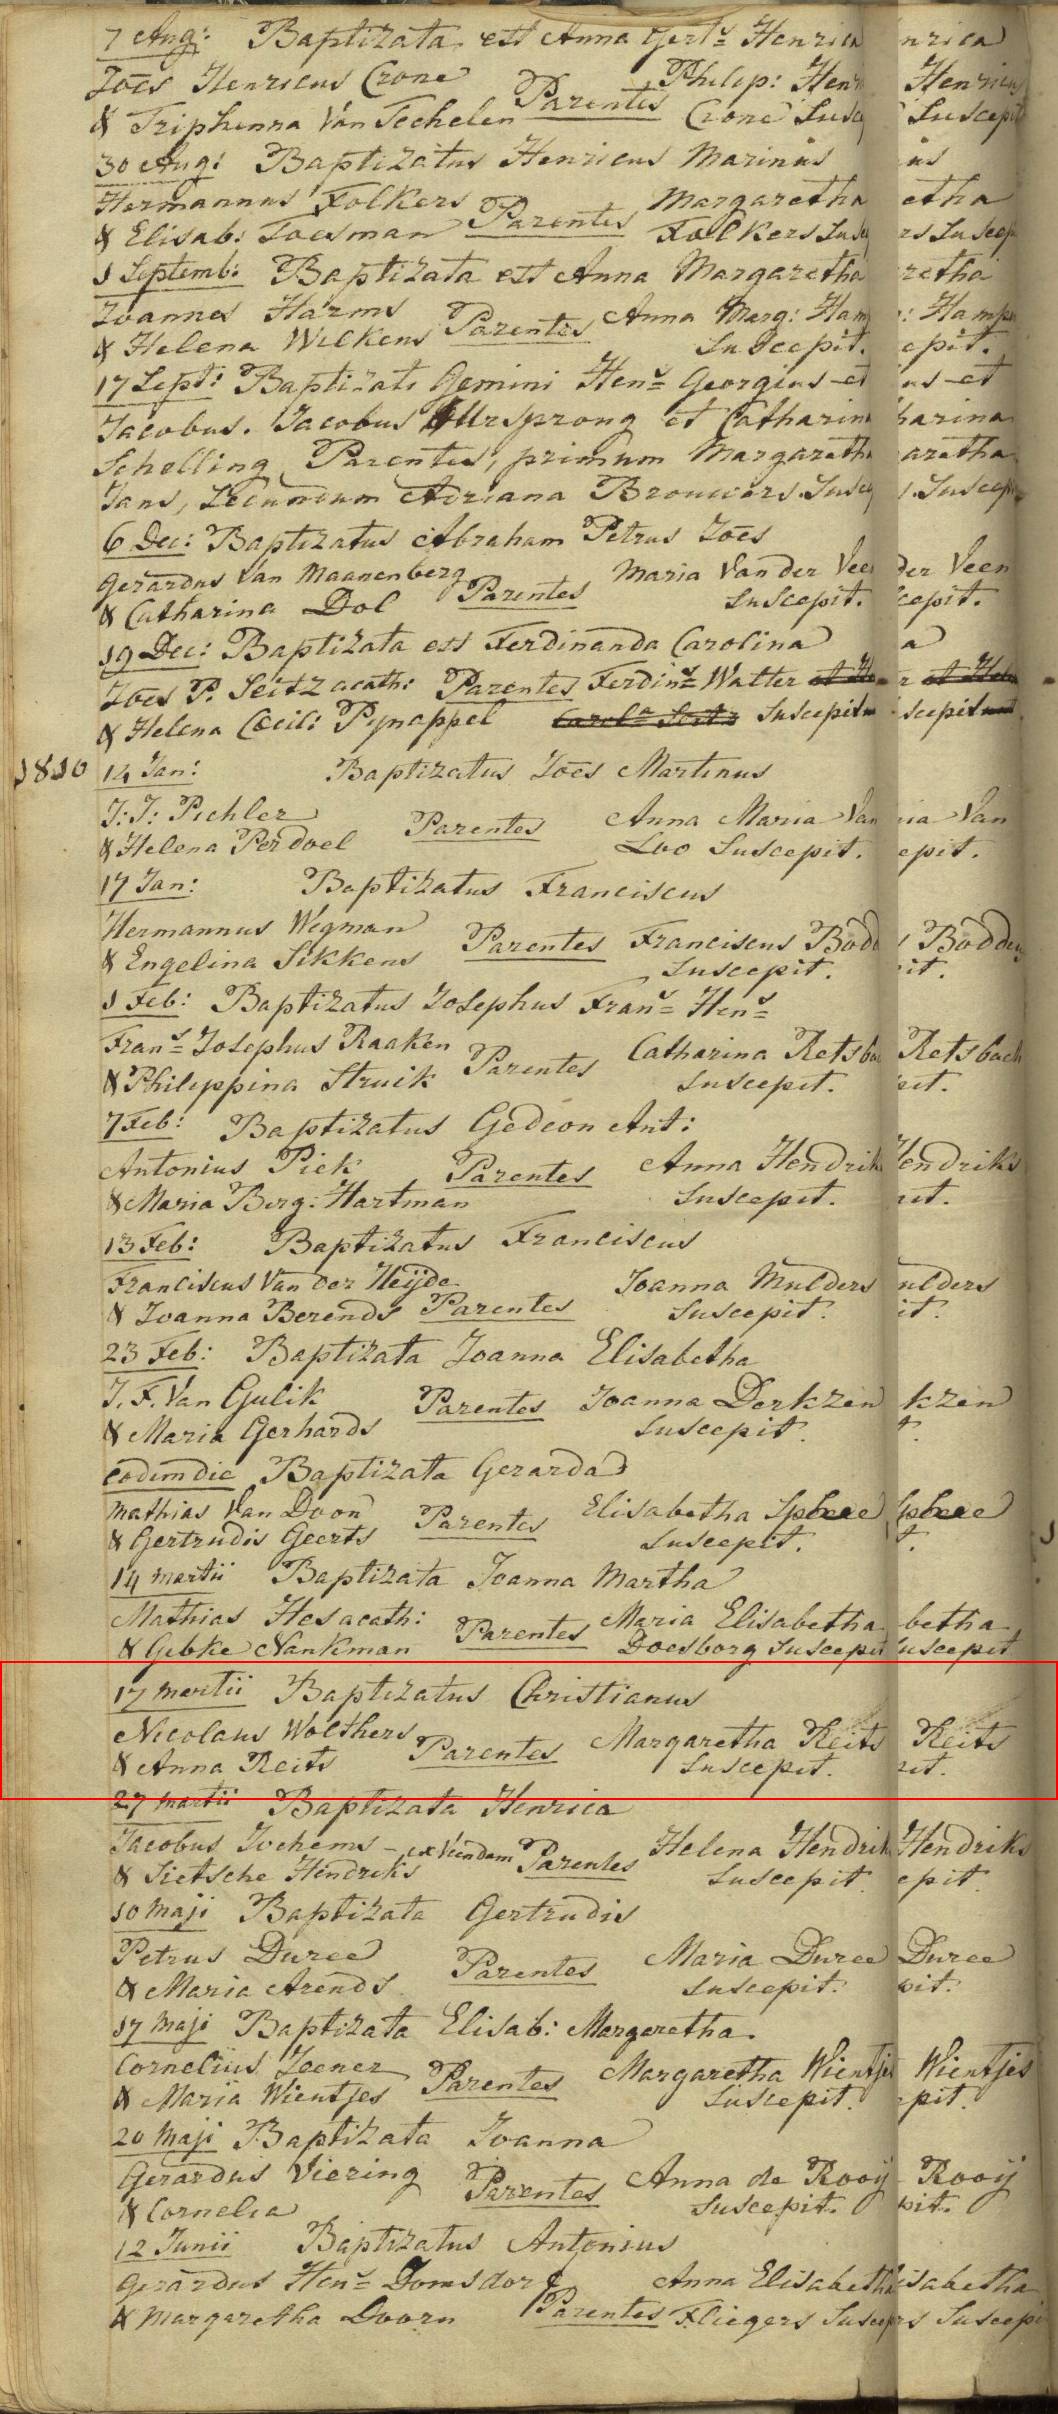 7 Aug: Baptizata est Anna Gert.s Henrica
Joēs Henricus Crone Parentes Philip: Henricus
& Triphenna Van Techelen Crone Suscepit
30 Aug: Baptizatus Henricus Marinus
Hermannus Folkers Parentes Margaretha
& Elisab: Toesman Folkers Suscep
1 Septemb: Baptizata est Anna Margaretha
Joannes Harms Parentes Anna Marg: Hamp
& Helena Wilkens Suscepit.
17 Sept: Baptizati Gemini Hen.s Georgius et
Jacobus. Jacobus Ursprong et Catharina
Schelling Parentes, primum Margaretha
Jans, Secundum Adriana Brouwers. Suscep
6 Dec: Baptizatus Abraham Petrus Joēs
Gerardus Van Maanenberg Parentes Maria Van der Veen
& Catharina Dol Suscepit.
19 Dec: Baptizata est Ferdinanda Carolina
Joēs P. Seitz acath: Parentes Ferdin.s Walter et Hel
& Helena Cœcil: Pynappel Carol.a Seitz Suscepit
1810 14 Jan: Baptizatus Joēs Martinus
J: J: Pichler Parentes Anna Maria Van
& Helena Perdoel Loo Suscepit.
17 Jan: Baptizatus Franciscus
Hermannus Wegman Parentes Franciscus Bodden
& Engelina Sikkens Suscepit.
1 Feb: Baptizatus Josephus Fran.s Hen.s
Fran.s Josephus Raaken Parentes Catharina Retsbach
& Philippina Struik Suscepit.
7 Feb: Baptizatus Gedeon Ant:
Antonius Piek Parentes Anna Hendriks
& Maria Birg: Hartman Suscepit.
13 Feb: Baptizatus Franciscus
Franciscus Van der Heijde Joanna Mulders
& Joanna Berends Parentes Suscepit.
23 Feb: Baptizata Joanna Elisabetha
J. F. Van Gulik Parentes Joanna Derkzen
& Maria Gerhards Suscepit.
eodem die Baptizata Gerarda
Mathias Van Doon Parentes Elisabetha
& Gertrudis Geerts Suscepit.
14 Martii Baptizata Joanna Martha
Mathias Hes acath: Parentes Maria Elisabetha
& Gebke Nankman Doesborg Suscepit
17 Martii Baptizatus Christianus
Nicolaus Wolthers Parentes Margaretha Reits
& Anna Reits Suscepit.
27 Martii Baptizata Henrica
Jacobus Jochems - ex Veendam Parentes Helena Hendriks
& Sietsche Hendriks Suscepit.
10 Maji Baptizata Gertrudis
Petrus Duree Parentes Maria Duree
& Maria Arends Suscepit.
17 Maji Baptizata Elisab: Margaretha.
Cornelius Zoener Parentes Margaretha Wientjes
& Maria Wientjes Suscepit.
20 Maji Baptizata Joanna
Gerardus Viering Parentes Anna de Rooij
& Cornelia Suscepit.
12 Junii Baptizatus Antonius
Gerardus Hen.s Domsdorf Parentes Anna Elisabetha
& Margaretha Doorn Fliegers Suscepi